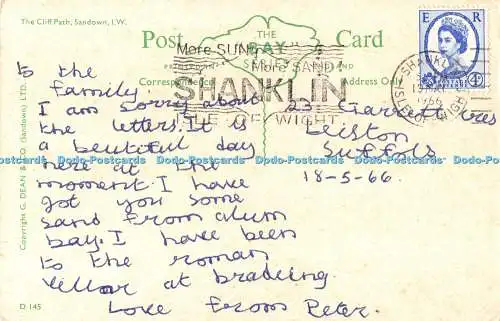 The Cliff Path, Sandown, I.W.
Post Card
PRINTED IN
THE BAY SERIES
Correspondence
Address Only
More SUN
More SAND
SHANKLIN
ISLE OF WIGHT
SHANKLIN
1966
ISLE OF WIGHT
E R
POSTAGE
4D
to the
Family.
I am sorry about
the letters. It is
a beutiful day
here at the
moment. I have
got you some
sand from alum
bay. I have been
to the roman
villar at brading
Love from Peter.
23 Garrett
Leiston
Suffols
18-5-66
Copyright G. DEAN & CO. (Sandown) LTD.
D 145
Dodo-Postcards Dodo-Postcards Dodo-Postcards Dodo-Postcards Dodo-Postcards Dodo-Postcards